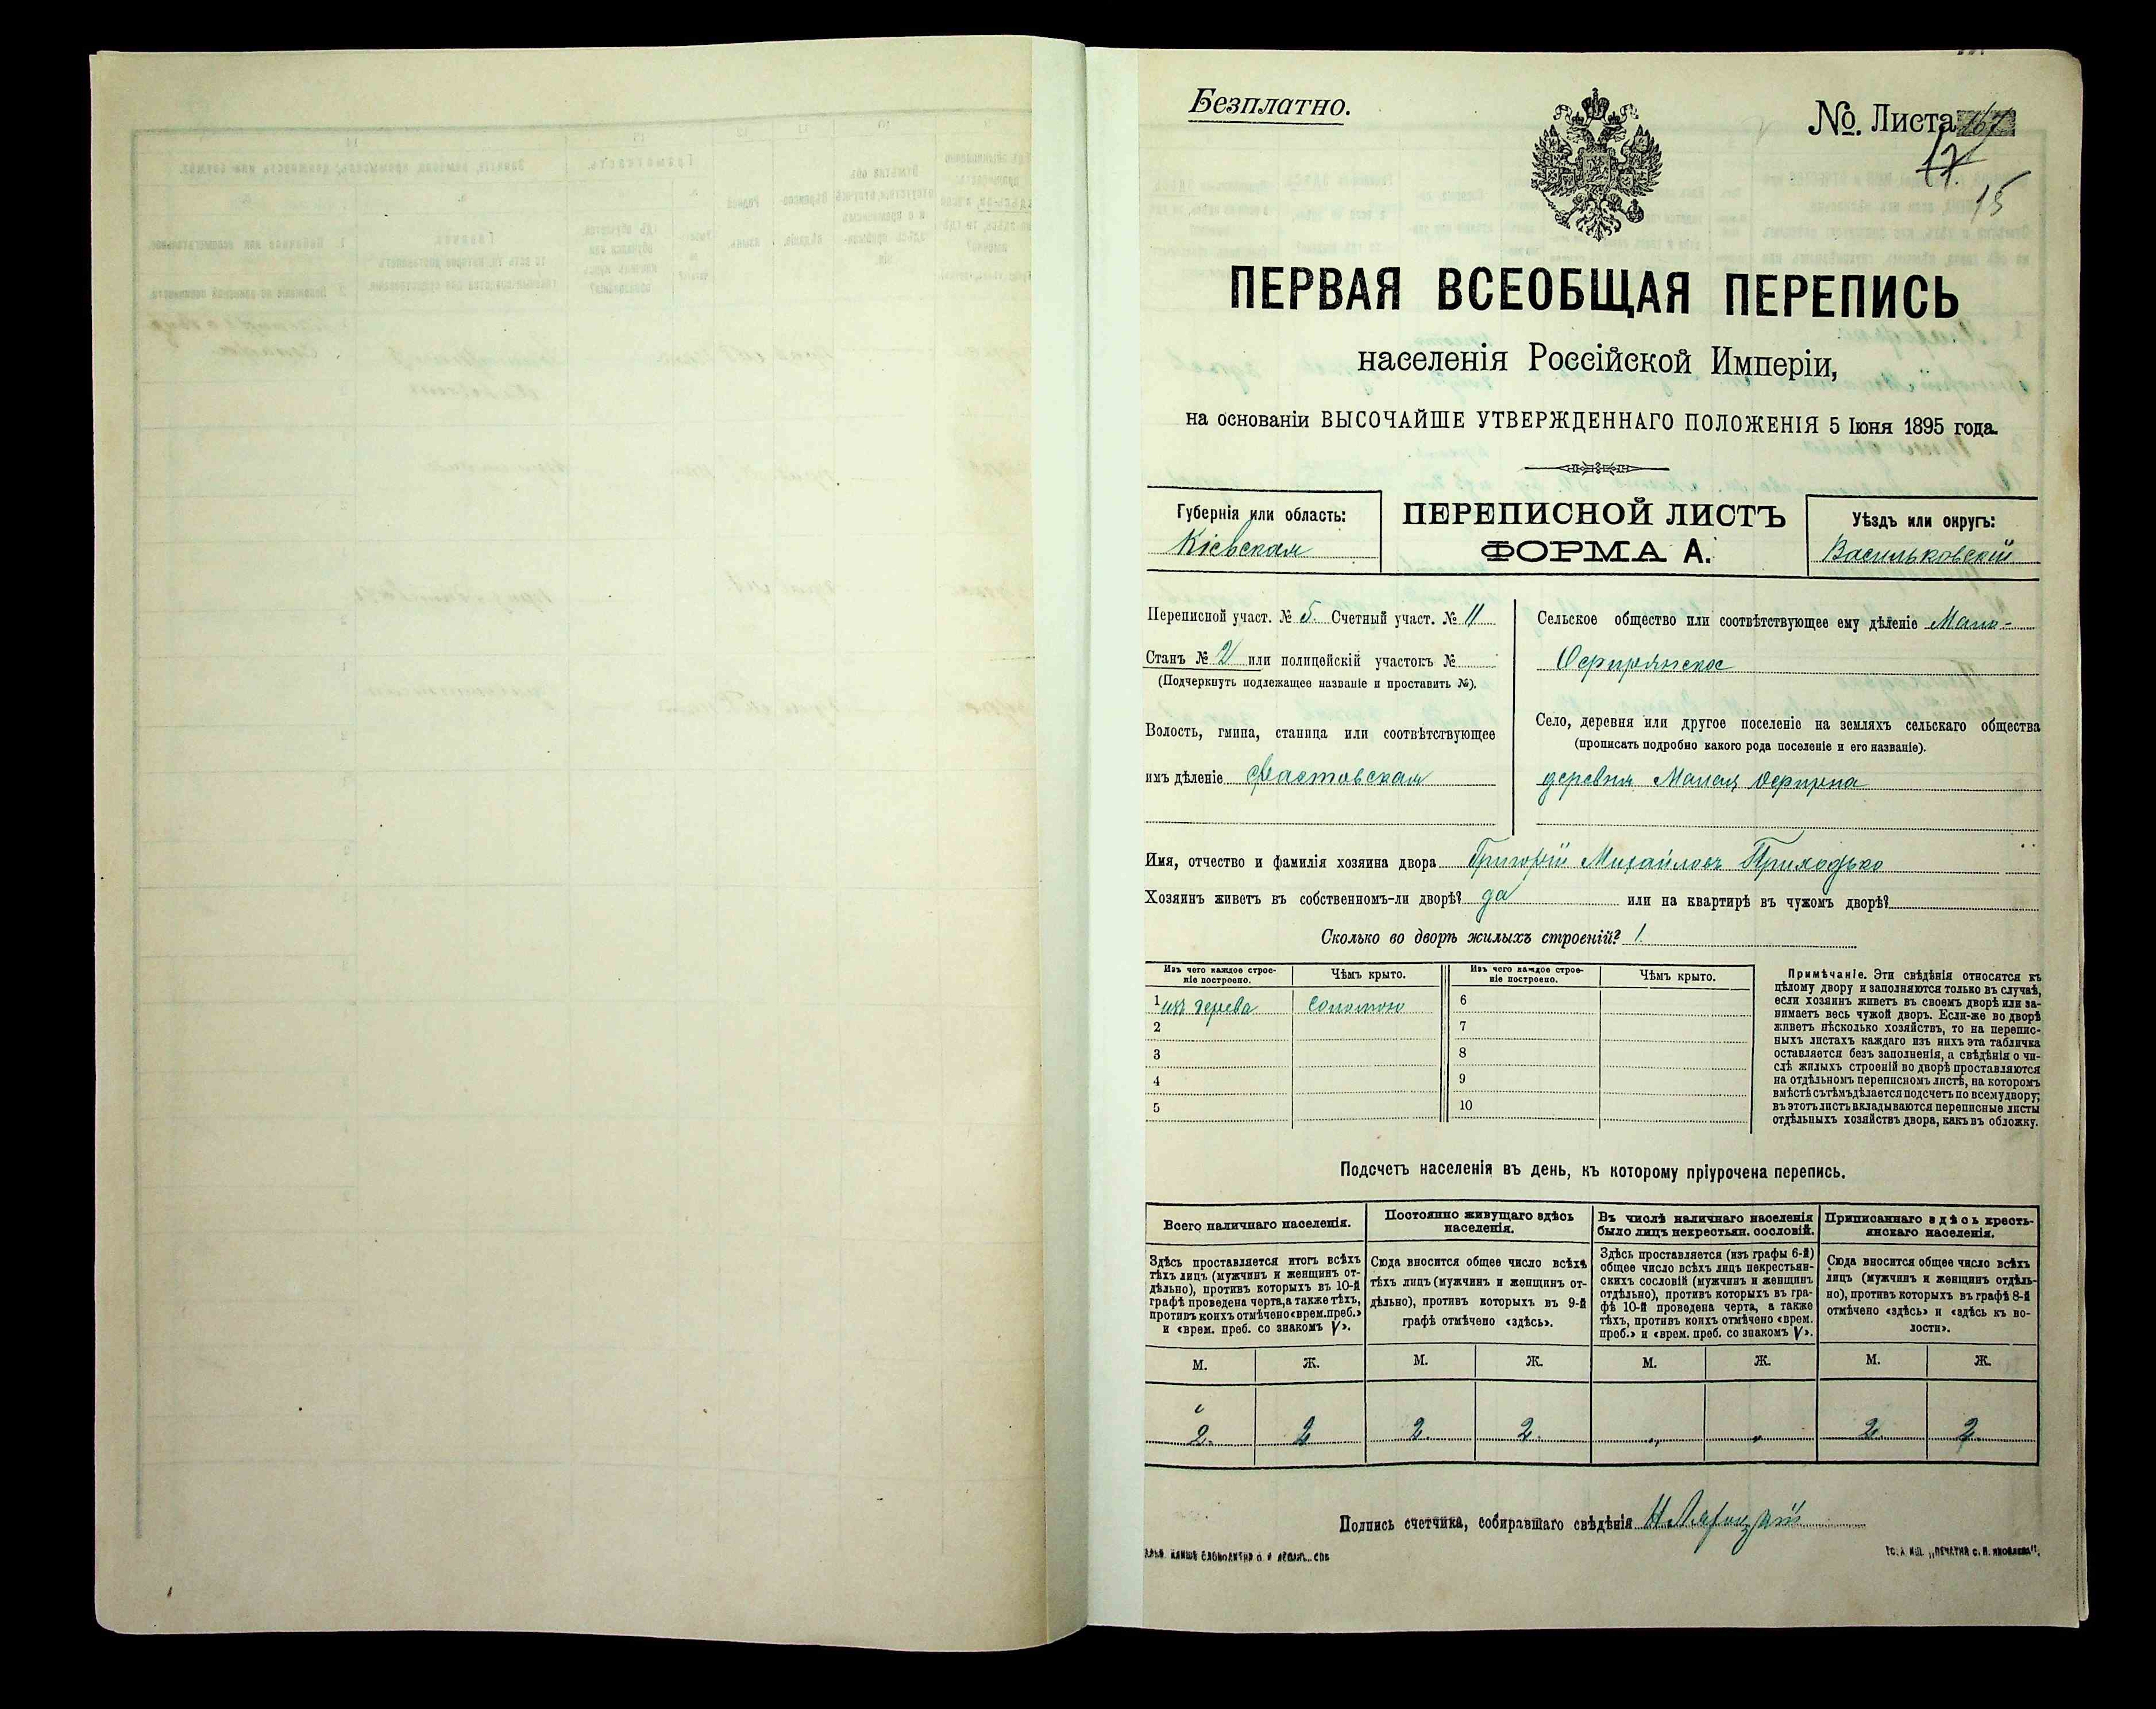 Безплатно.
№. Листа
17
15
ПЕРВАЯ ВСЕОБЩАЯ ПЕРЕПИСЬ
населенія Россійской Имперіи,
на основаніи ВЫСОЧАЙШЕ УТВЕРЖДЕННАГО ПОЛОЖЕНІЯ 5 Іюня 1895 года.
Губернія или область:
Кіевская
ПЕРЕПИСНОЙ ЛИСТЪ
ФОРМА А.
Уѣздъ или округъ:
Васильковскій
Переписной участ. № 5. Счетный участ. № 11
Станъ № 2 или полицейскій участокъ №
(Подчеркнуть подлежащее названіе и проставить №).
Волость, гмина, станица или соотвѣтствующее
имъ дѣленіе Фастовская
Сельское общество или соотвѣтствующее ему дѣленіе Мало-
Офирнянское
Село, деревня или другое поселеніе на земляхъ сельскаго общества
(прописать подробно какого рода поселеніе и его названіе).
деревня Малая Офирна
Имя, отчество и фамилія хозяина двора Григорій Михайловъ Приходько
Хозяинъ живетъ въ собственномъ-ли дворѣ? да или на квартирѣ въ чужомъ дворѣ?
Сколько во дворѣ жилыхъ строеній? 1.
Изъ чего каждое строе-
ніе построено.
Чѣмъ крыто.
Изъ чего каждое строе-
ніе построено.
Чѣмъ крыто.
1 изъ дерева соломою 6
2 7
3 8
4 9
5 10
Примѣчаніе. Эти свѣдѣнія относятся къ
цѣлому двору и заполняются только въ случаѣ,
если хозяинъ живетъ въ своемъ дворѣ или за-
нимаетъ весь чужой дворъ. Если-же во дворѣ
живетъ нѣсколько хозяйствъ, то на перепис-
ныхъ листахъ каждаго изъ нихъ эта табличка
оставляется безъ заполненія, а свѣдѣнія о чи-
слѣ жилыхъ строеній во дворѣ проставляются
на отдѣльномъ переписномъ листѣ, на которомъ
вмѣстѣ съ тѣмъ дѣлается подсчетъ по всему двору;
въ этотъ листъ вкладываются переписные листы
отдѣльныхъ хозяйствъ двора, какъ въ обложку.
Подсчетъ населенія въ день, къ которому пріурочена перепись.
Всего наличнаго населенія.
Здѣсь проставляется итогъ всѣхъ
тѣхъ лицъ (мужчинъ и женщинъ от-
дѣльно), противъ которыхъ въ 10-й
графѣ проведена черта, а также тѣхъ,
противъ коихъ отмѣчено «врем. преб.»
и «врем. преб. со знакомъ V».
Постоянно живущаго здѣсь
населенія.
Сюда вносится общее число всѣхъ
тѣхъ лицъ (мужчинъ и женщинъ от-
дѣльно), противъ которыхъ въ 9-й
графѣ отмѣчено «здѣсь».
Въ числѣ наличнаго населенія
было лицъ некрестьян. сословій.
Здѣсь проставляется (изъ графы 6-й)
общее число всѣхъ лицъ некрестьян-
скихъ сословій (мужчинъ и женщинъ
отдѣльно), противъ которыхъ въ гра-
фѣ 10-й проведена черта, а также
тѣхъ, противъ коихъ отмѣчено «врем.
преб.» и «врем. преб. со знакомъ V».
Приписаннаго здѣсь кресть-
янскаго населенія.
Сюда вносится общее число всѣхъ
лицъ (мужчинъ и женщинъ отдѣль-
но), противъ которыхъ въ графѣ 8-й
отмѣчено «здѣсь» и «здѣсь къ во-
лости».
М. Ж. М. Ж. М. Ж. М. Ж.
2. 2 2. 2. „ „ 2. 2.
Подпись счетчика, собиравшаго свѣдѣнія